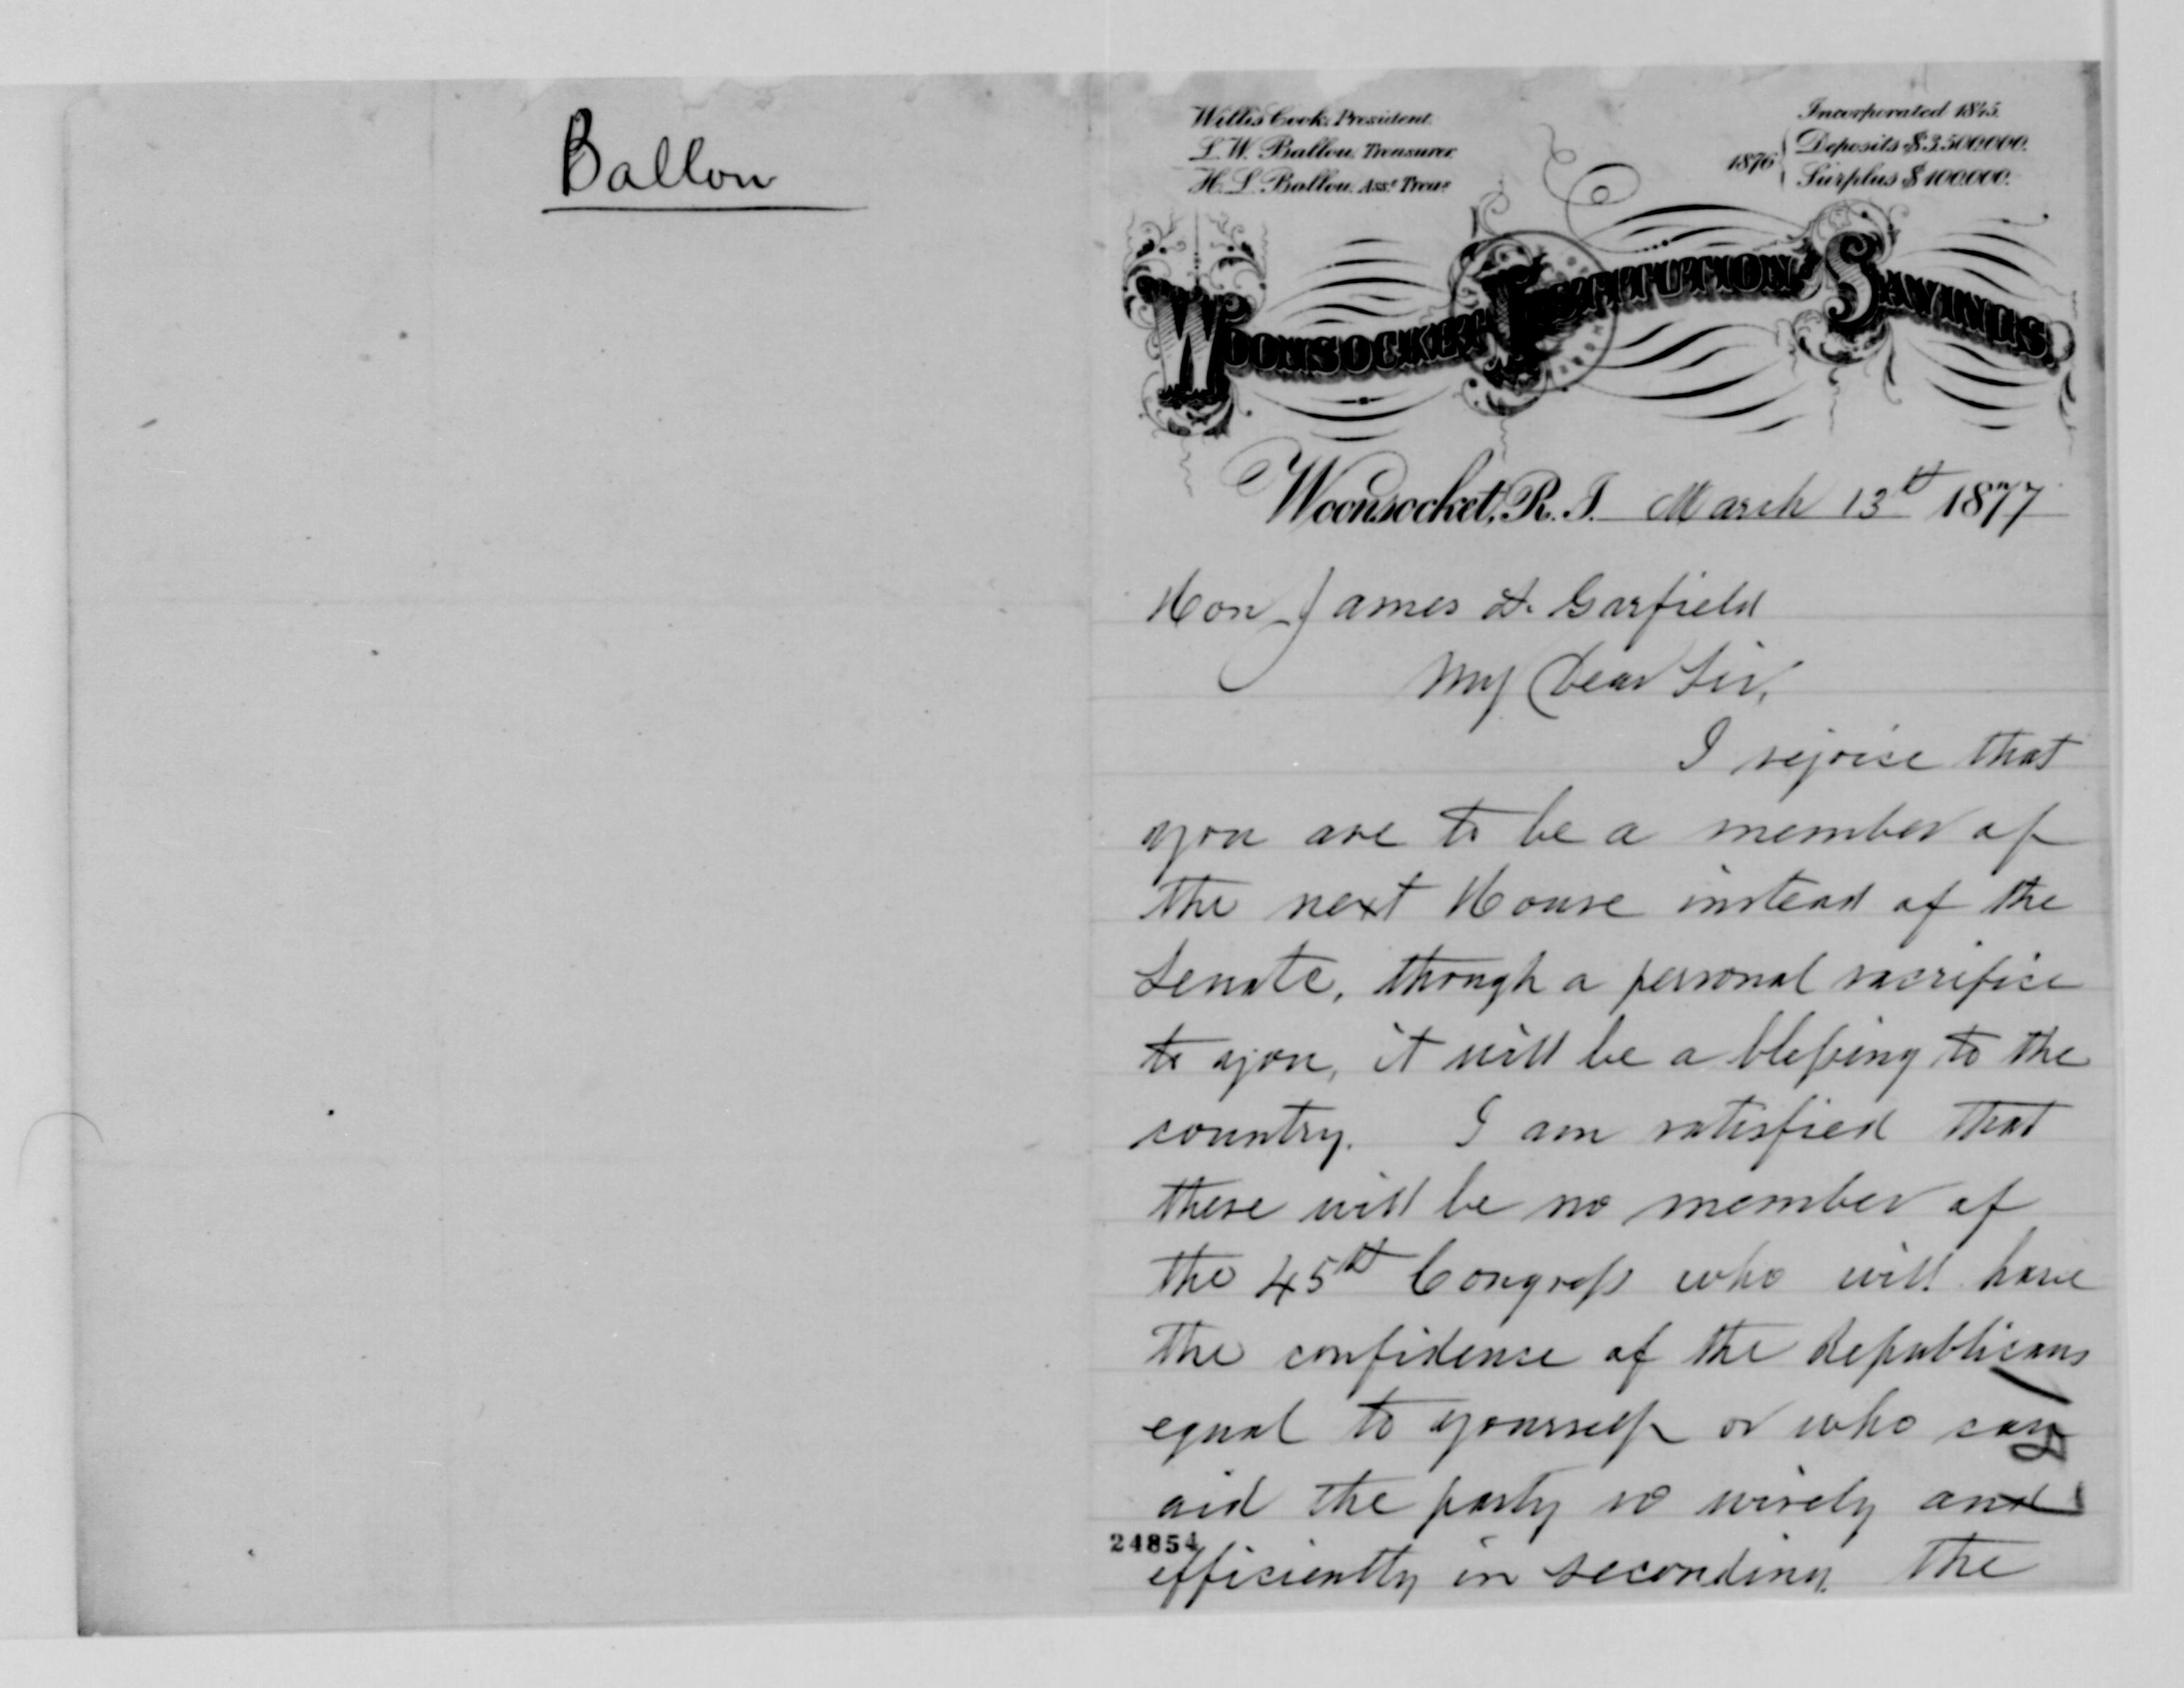 Ballou
Willis Cook, President.
L. W. Ballou, Treasurer.
H. L. Ballou, Asst. Treas.
Incorporated 1845.
1876 Deposits $3.500.000.
Surplus $100.000.
Woonsocket Institution Savings.
Woonsocket, R. I. March 13th 1877
Hon James A. Garfield
My Dear Sir,
I rejoice that
you are to be a member of
the next House instead of the
Senate, though a personal sacrifice
to you, it will be a blessing to the
country. I am satisfied that
there will be no member of
the 45th Congress who will have
the confidence of the Republicans
equal to yourself or who can
aid the party so wisely and
24854
efficiently in seconding the